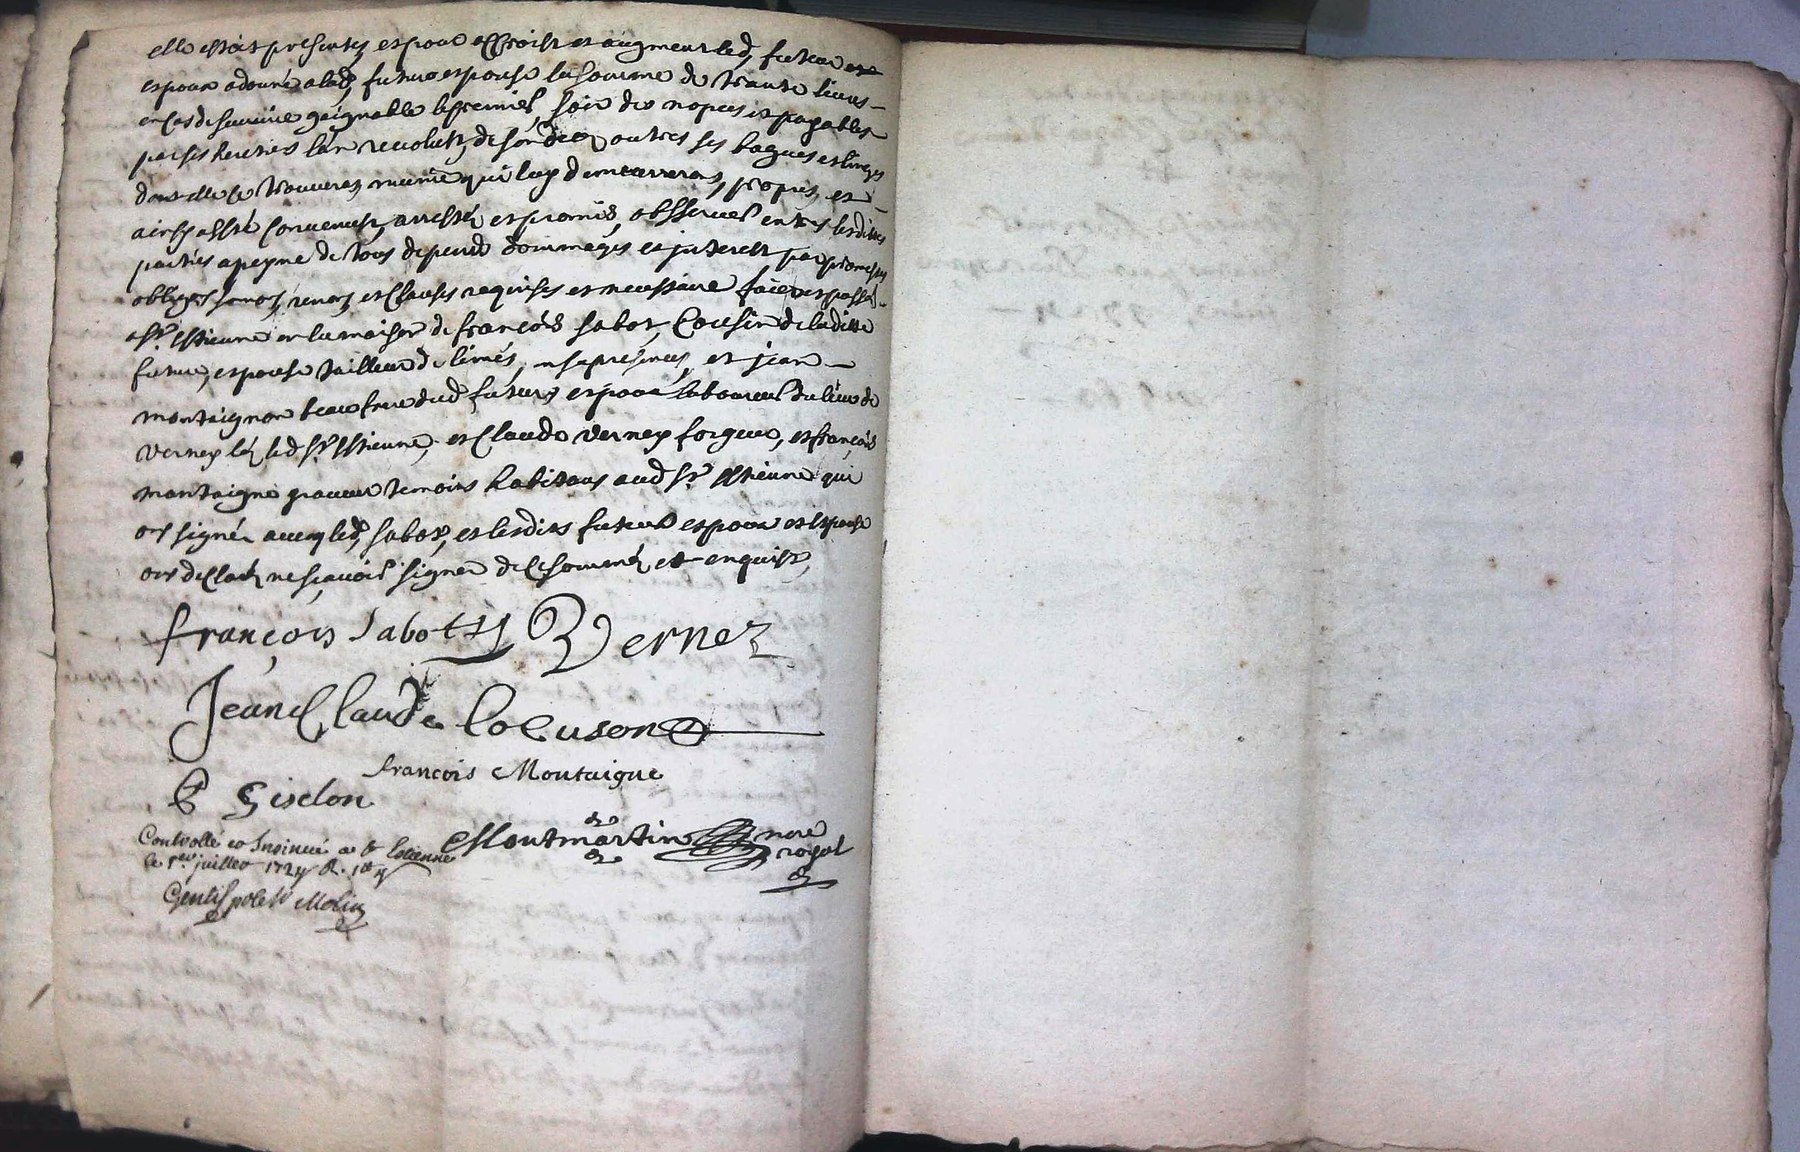 elle estat presentes, et pour acroist et augment led, futeur
espoux a donné a lad, future espouse la somme de trante livres
en cas de survive gaignable le premier, soir des nopces et payables
par ses heretiers l'an revolut, de son decez outres ses bagues et linges
dont elle se trouvera, munie qui luy demeurerons, propres, et
ainsy a esté convenust, arresté et promis, observer entres lesdittes
parties a peyne de tous depend dommages et interest par promesses
oblig⁠s sonos, renon, et clauses requises et necessaire faict et passé
a St Estienne en la maison de françois sabot, Cousin de laditte
future, espouse tailleur de limes, en sa presence, et jean
montaignon beau frere dud futeur espoux laboureur du lieu de
Verney léz led St Estienne, et Claude Verney forgeur, et françois
montaigne graveur temoins habitans aud St Estienne qui
ont signéz avecq led, sabot, et lesdits futeur espoux et espouse
ont declaré ne sçavoir signer de ce sommé et enquist,
françois sabot Vernez
Jean Claude
françois Montaigne
Giselon
Montmartin nore royal
Controllé et Insinué a St Estienne
le 1er juillet 172
Molin